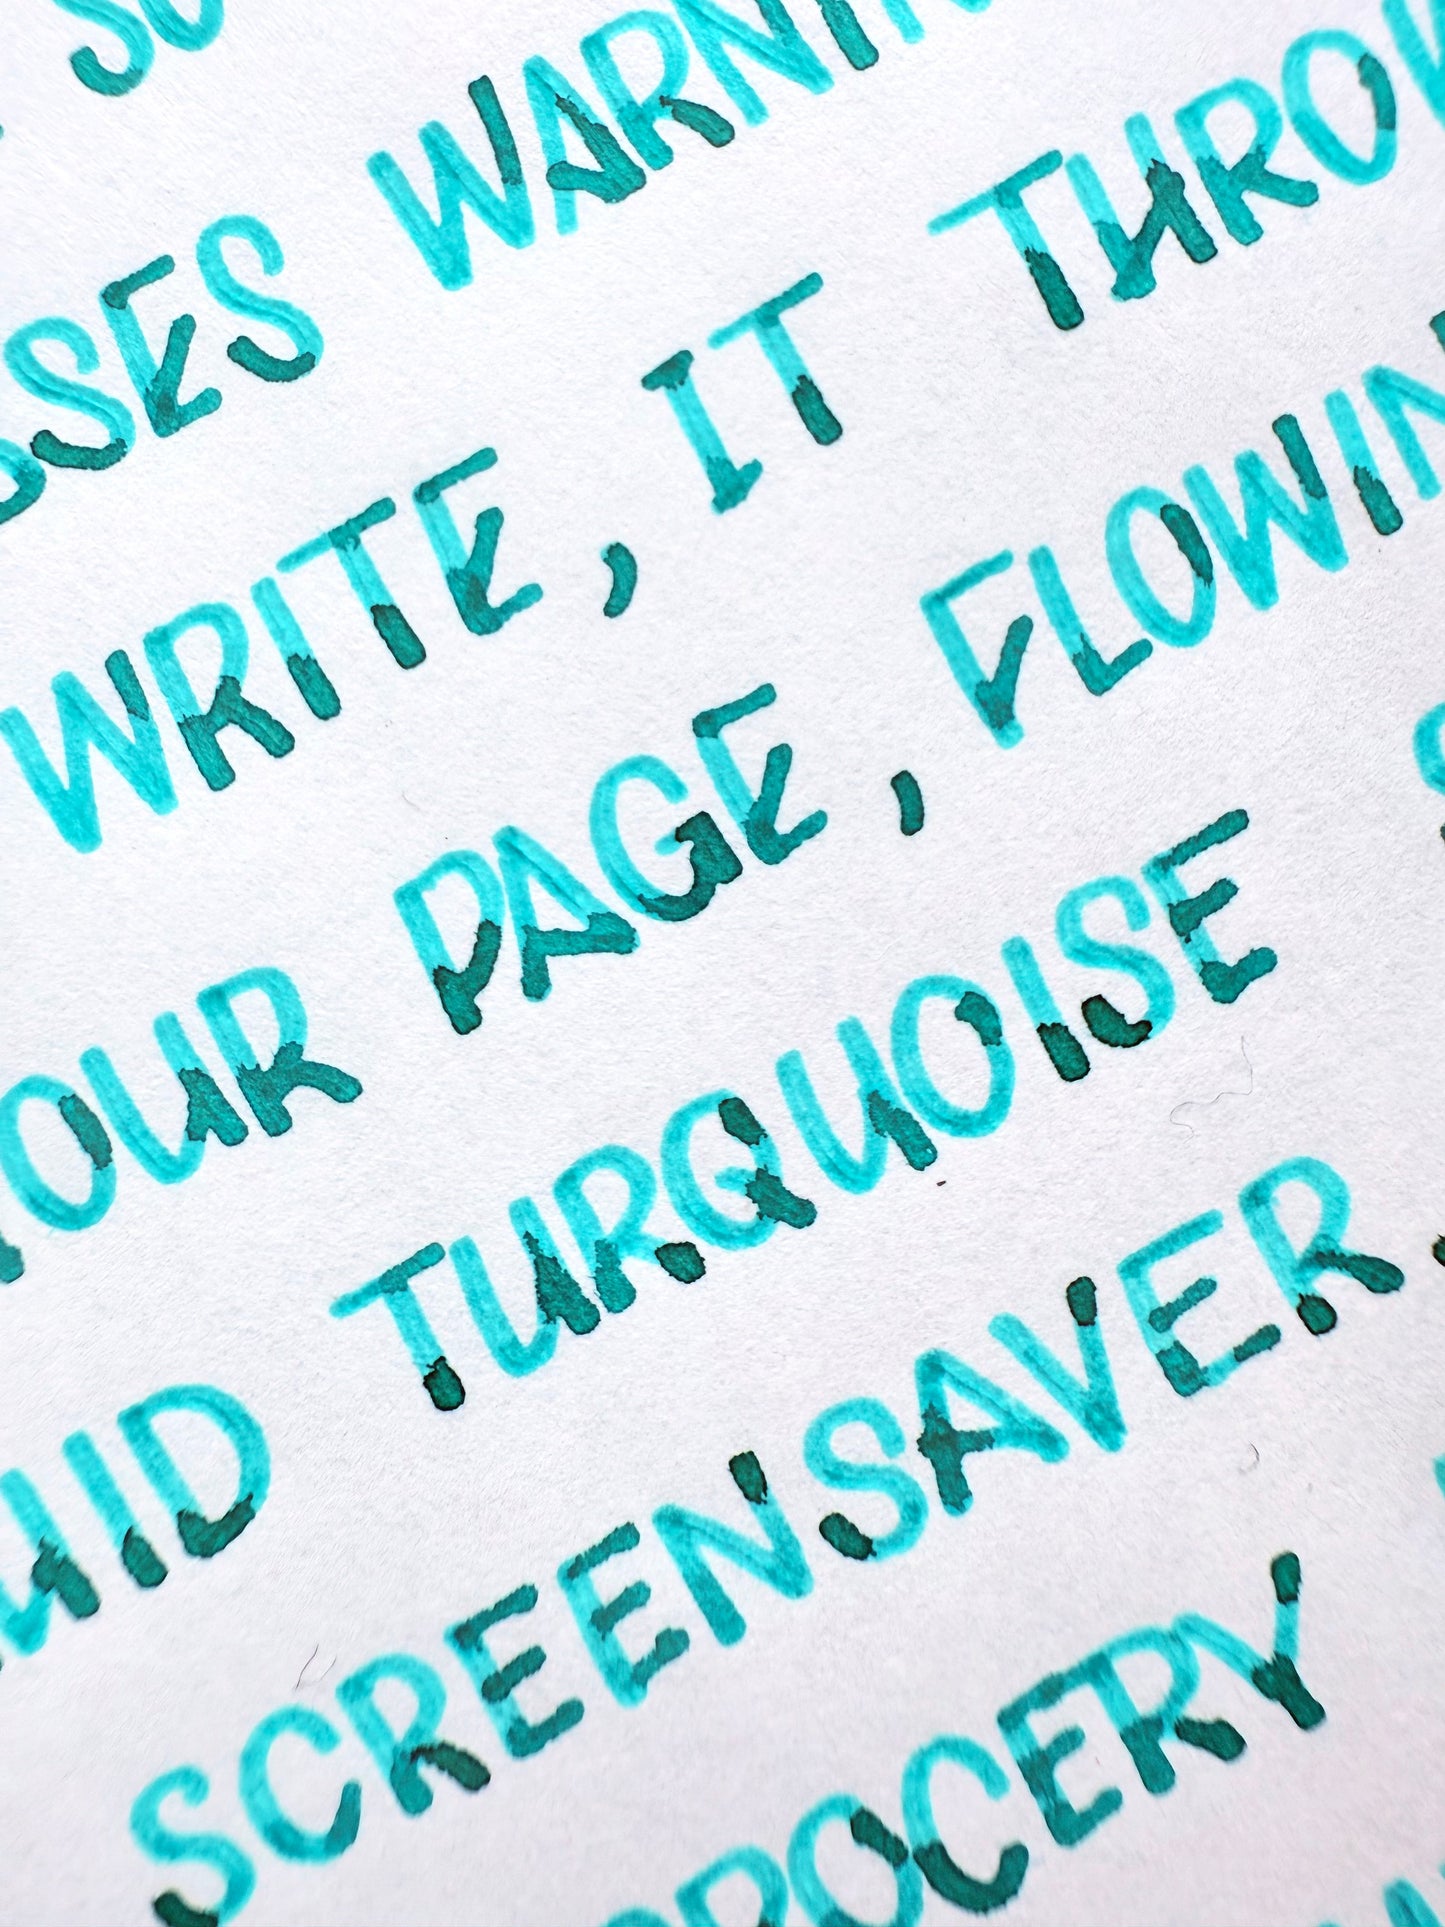 SSES WARNIN
WRITE, IT THROW
OUR PAGE, FLOWIN
UID TURQUOISE S
SCREENSAVER
ROCERY